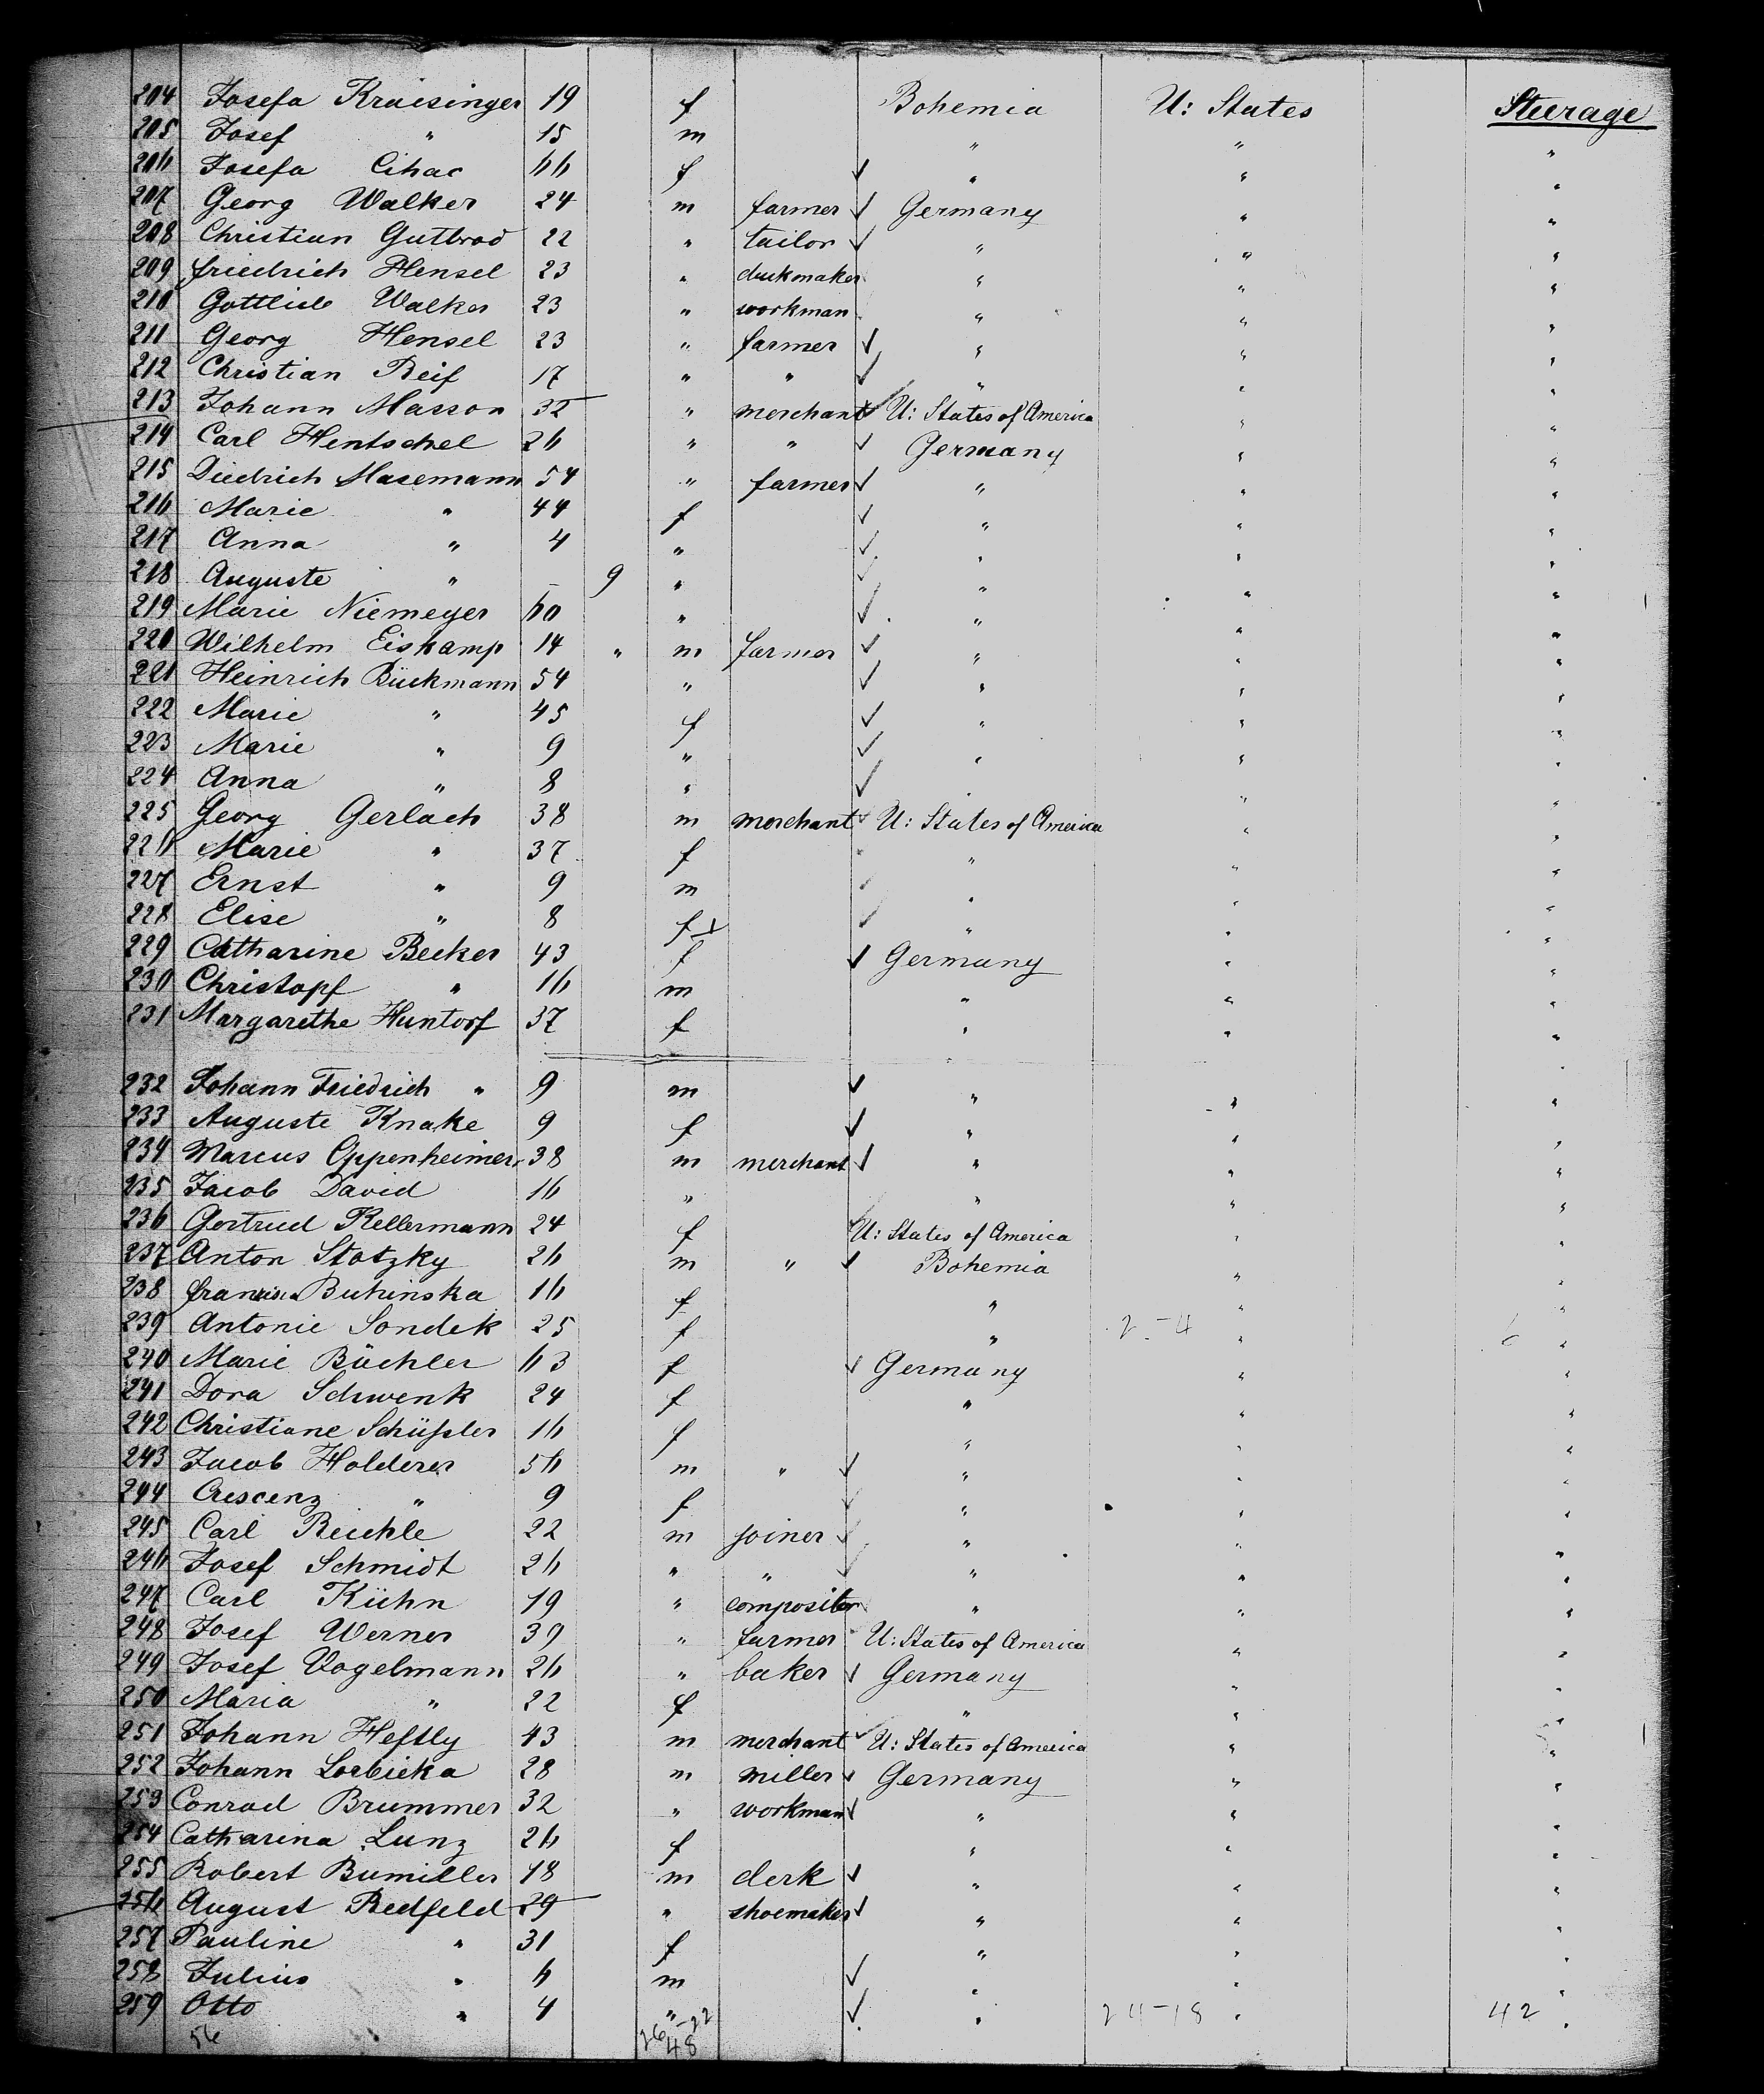 204 Josefa Kraisinger 19 f Bohemia U: States Steerage
205 Josef " 15 m " " "
206 Josefa Cihac 66 f ✓ " " "
207 Georg Walker 24 m farmer ✓ Germany " "
208 Christian Gutbrod 22 " tailor ✓ " " "
209 friedrich Hensel 23 " " " "
210 Gottlieb Walker 23 " workman " " "
211 Georg Hensel 23 " farmer ✓ " " "
212 Christian Reif 17 " " ✓ " " "
213 Johann Masson 32 " merchant ✓ U: States of America " "
214 Carl Hentschel 26 " " ✓ Germany " "
215 Diedrich Hasemann 54 " farmer ✓ " " "
216 Marie " 44 f ✓ " " "
217 Anna " 4 " ✓ " " "
218 Auguste " – 9 " ✓ " " "
219 Marie Niemeyer 60 " ✓ " " "
220 Wilhelm Eiskamp 14 " m farmer ✓ " " "
221 Heinrich Bückmann 54 " ✓ " " "
222 Marie " 45 f ✓ " " "
223 Marie " 9 " ✓ " " "
224 Anna " 8 " ✓ " " "
225 Georg Gerlach 38 m merchant ✓ U: States of America " "
226 Marie " 37 f " " "
227 Ernst " 9 m ✓ " " "
228 Elise " 8 f ✓ " " "
229 Catharine Becker 43 f ✓ Germany " "
230 Christopf " 16 m " " "
231 Margarethe Huntorf 37 f " " "
232 Johann Friedrich " 9 m ✓ " " "
233 Auguste Knake 9 f ✓ " " "
234 Marcus Oppenheimer 38 m merchant ✓ " " "
235 Jacob David 16 " " " "
236 Gertrud Kellermann 24 f U: States of America " "
237 Anton Stotzky 26 m " ✓ Bohemia " "
238 Buhinska 16 f " " "
239 Antonie Sondek 25 f " 2-4 " 6 "
240 Marie Büchler 63 f ✓ Germany " "
241 Dora Schwenk 24 f " " "
242 Christiane Schüssler 16 f " " "
243 Jacob Holderer 56 m " ✓ " " "
244 Crescenz " 9 f ✓ " " "
245 Carl Reichle 22 m joiner ✓ " " "
246 Josef Schmidt 26 " " ✓ " " "
247 Carl Kühn 19 " compositor " " "
248 Josef Werner 39 " farmer U: States of America " "
249 Josef Vogelmann 26 " baker ✓ Germany " "
250 Maria " 22 f " " "
251 Johann Heftly 43 m merchant ✓ U: States of America " "
252 Johann Lorbicka 28 m miller ✓ Germany " "
253 Conrad Brummer 32 " workman ✓ " " "
254 Catharina Lunz 26 f " " "
255 Robert Bumiller 18 m clerk ✓ " " "
256 August Redfeld 29 " shoemaker ✓ " " "
257 Pauline " 31 f " " "
258 Julius " 6 m ✓ " " "
259 Otto " 4 " ✓ " 24-18 " 42 "
56 26-22
48